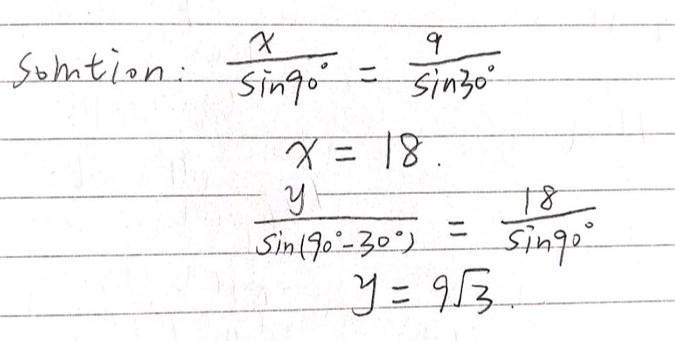 Solution: x/sin90° = 9/sin30°
x = 18.
y/sin(90°-30°) = 18/sin90°
y = 9√3.